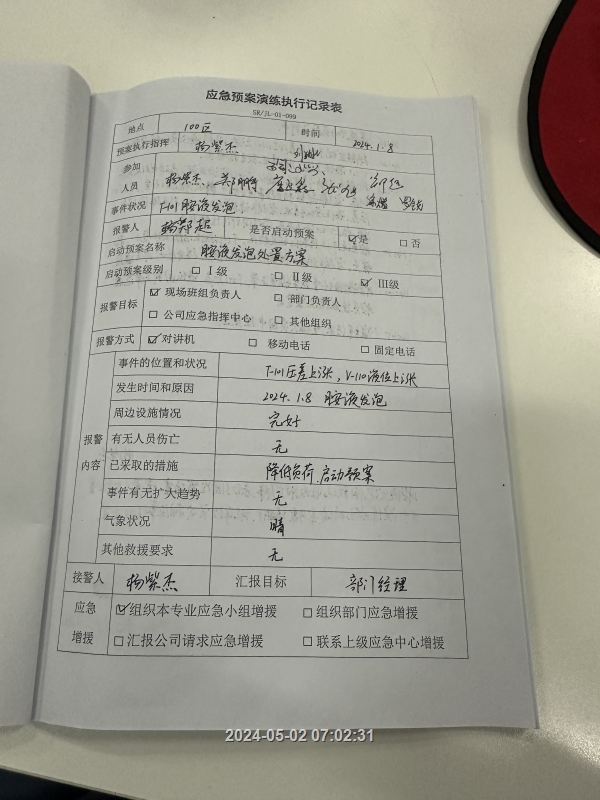 应急预案演练执行记录表
SR/JL-01-099
地点 100区 时间 2024.1.8
预案执行指挥 杨紫杰
参加
人员 杨紫杰
事件状况 T-101胺液发泡
报警人 是否启动预案 ☑是 □否
启动预案名称 胺液发泡处置方案
启动预案级别 □Ⅰ级 □Ⅱ级 ☑Ⅲ级
报警目标 ☑现场班组负责人 □部门负责人
□公司应急指挥中心 □其他组织
报警方式 ☑对讲机 □移动电话 □固定电话
报警
内容
事件的位置和状况 T-101压差上涨，V-110液位上涨
发生时间和原因 2024.1.8 胺液发泡
周边设施情况 完好
有无人员伤亡 无
已采取的措施 降低负荷.启动预案
事件有无扩大趋势 无
气象状况 晴
其他救援要求 无
接警人 杨紫杰 汇报目标 部门经理
应急
增援
☑组织本专业应急小组增援 □组织部门应急增援
□汇报公司请求应急增援 □联系上级应急中心增援
2024-05-02 07:02:31